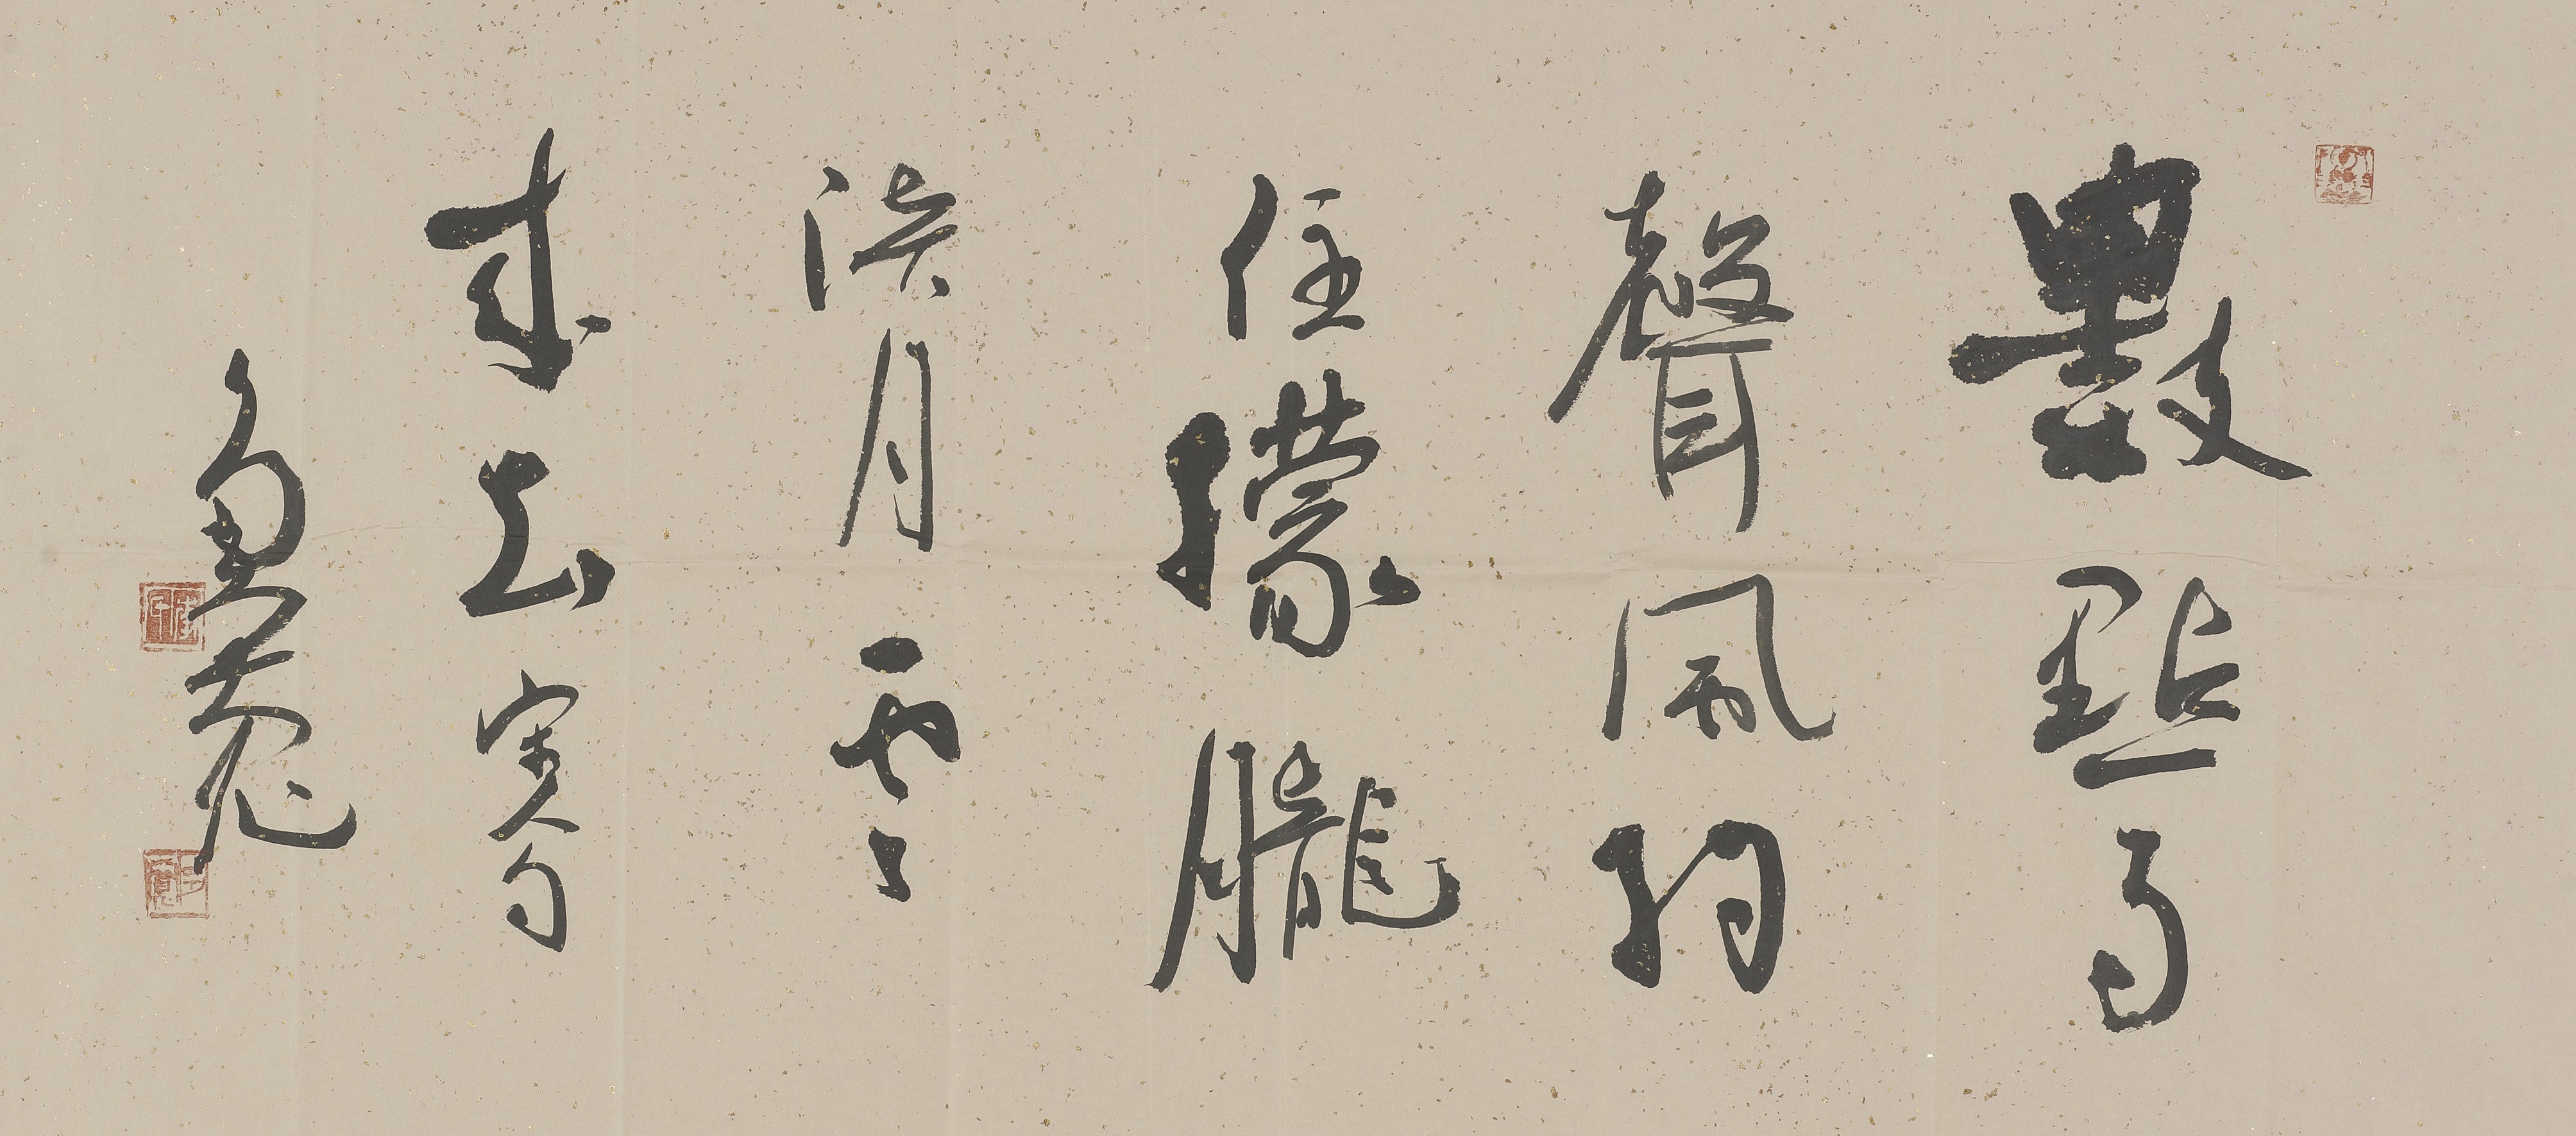 數點雨
聲風約
住朦朧
淡月雲
來去宋人句